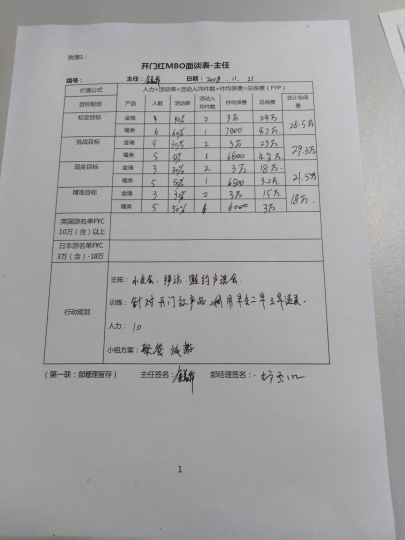 附表1：
开门红MBO面谈表-主任
组号： 主任： 日期：2018.11.21
价值公式 人力×活动率×活动人均件数×件均保费=总保费（FYP）
目标制定 产品 人数 活动率 活动人均件数 件均保费 总保费 合计总保费
初定目标 金瑞 4 40% 2 3万 24万 28.5万
福类 6 60% 1 7000 4.2万
挑战目标 金瑞 4 40% 2 3万 23万 29.3万
福类 5 1 6800
现实目标 金瑞 3 30% 2 3万 18万 21.5万
福类 5 50% 1 6500 3.2万
精准目标 金瑞 3 2 3万 15万 18万
福类 5 50% 6000 3万
美国游名单FYC
10万（含）以上
日本游名单FYC
3万（含）-10万
行动规划
主拓：
训练：针对开门红产品 利用早会二早
人力：10
小组方案：聚餐
（第一联：部经理留存） 主任签名： 部经理签名：
1